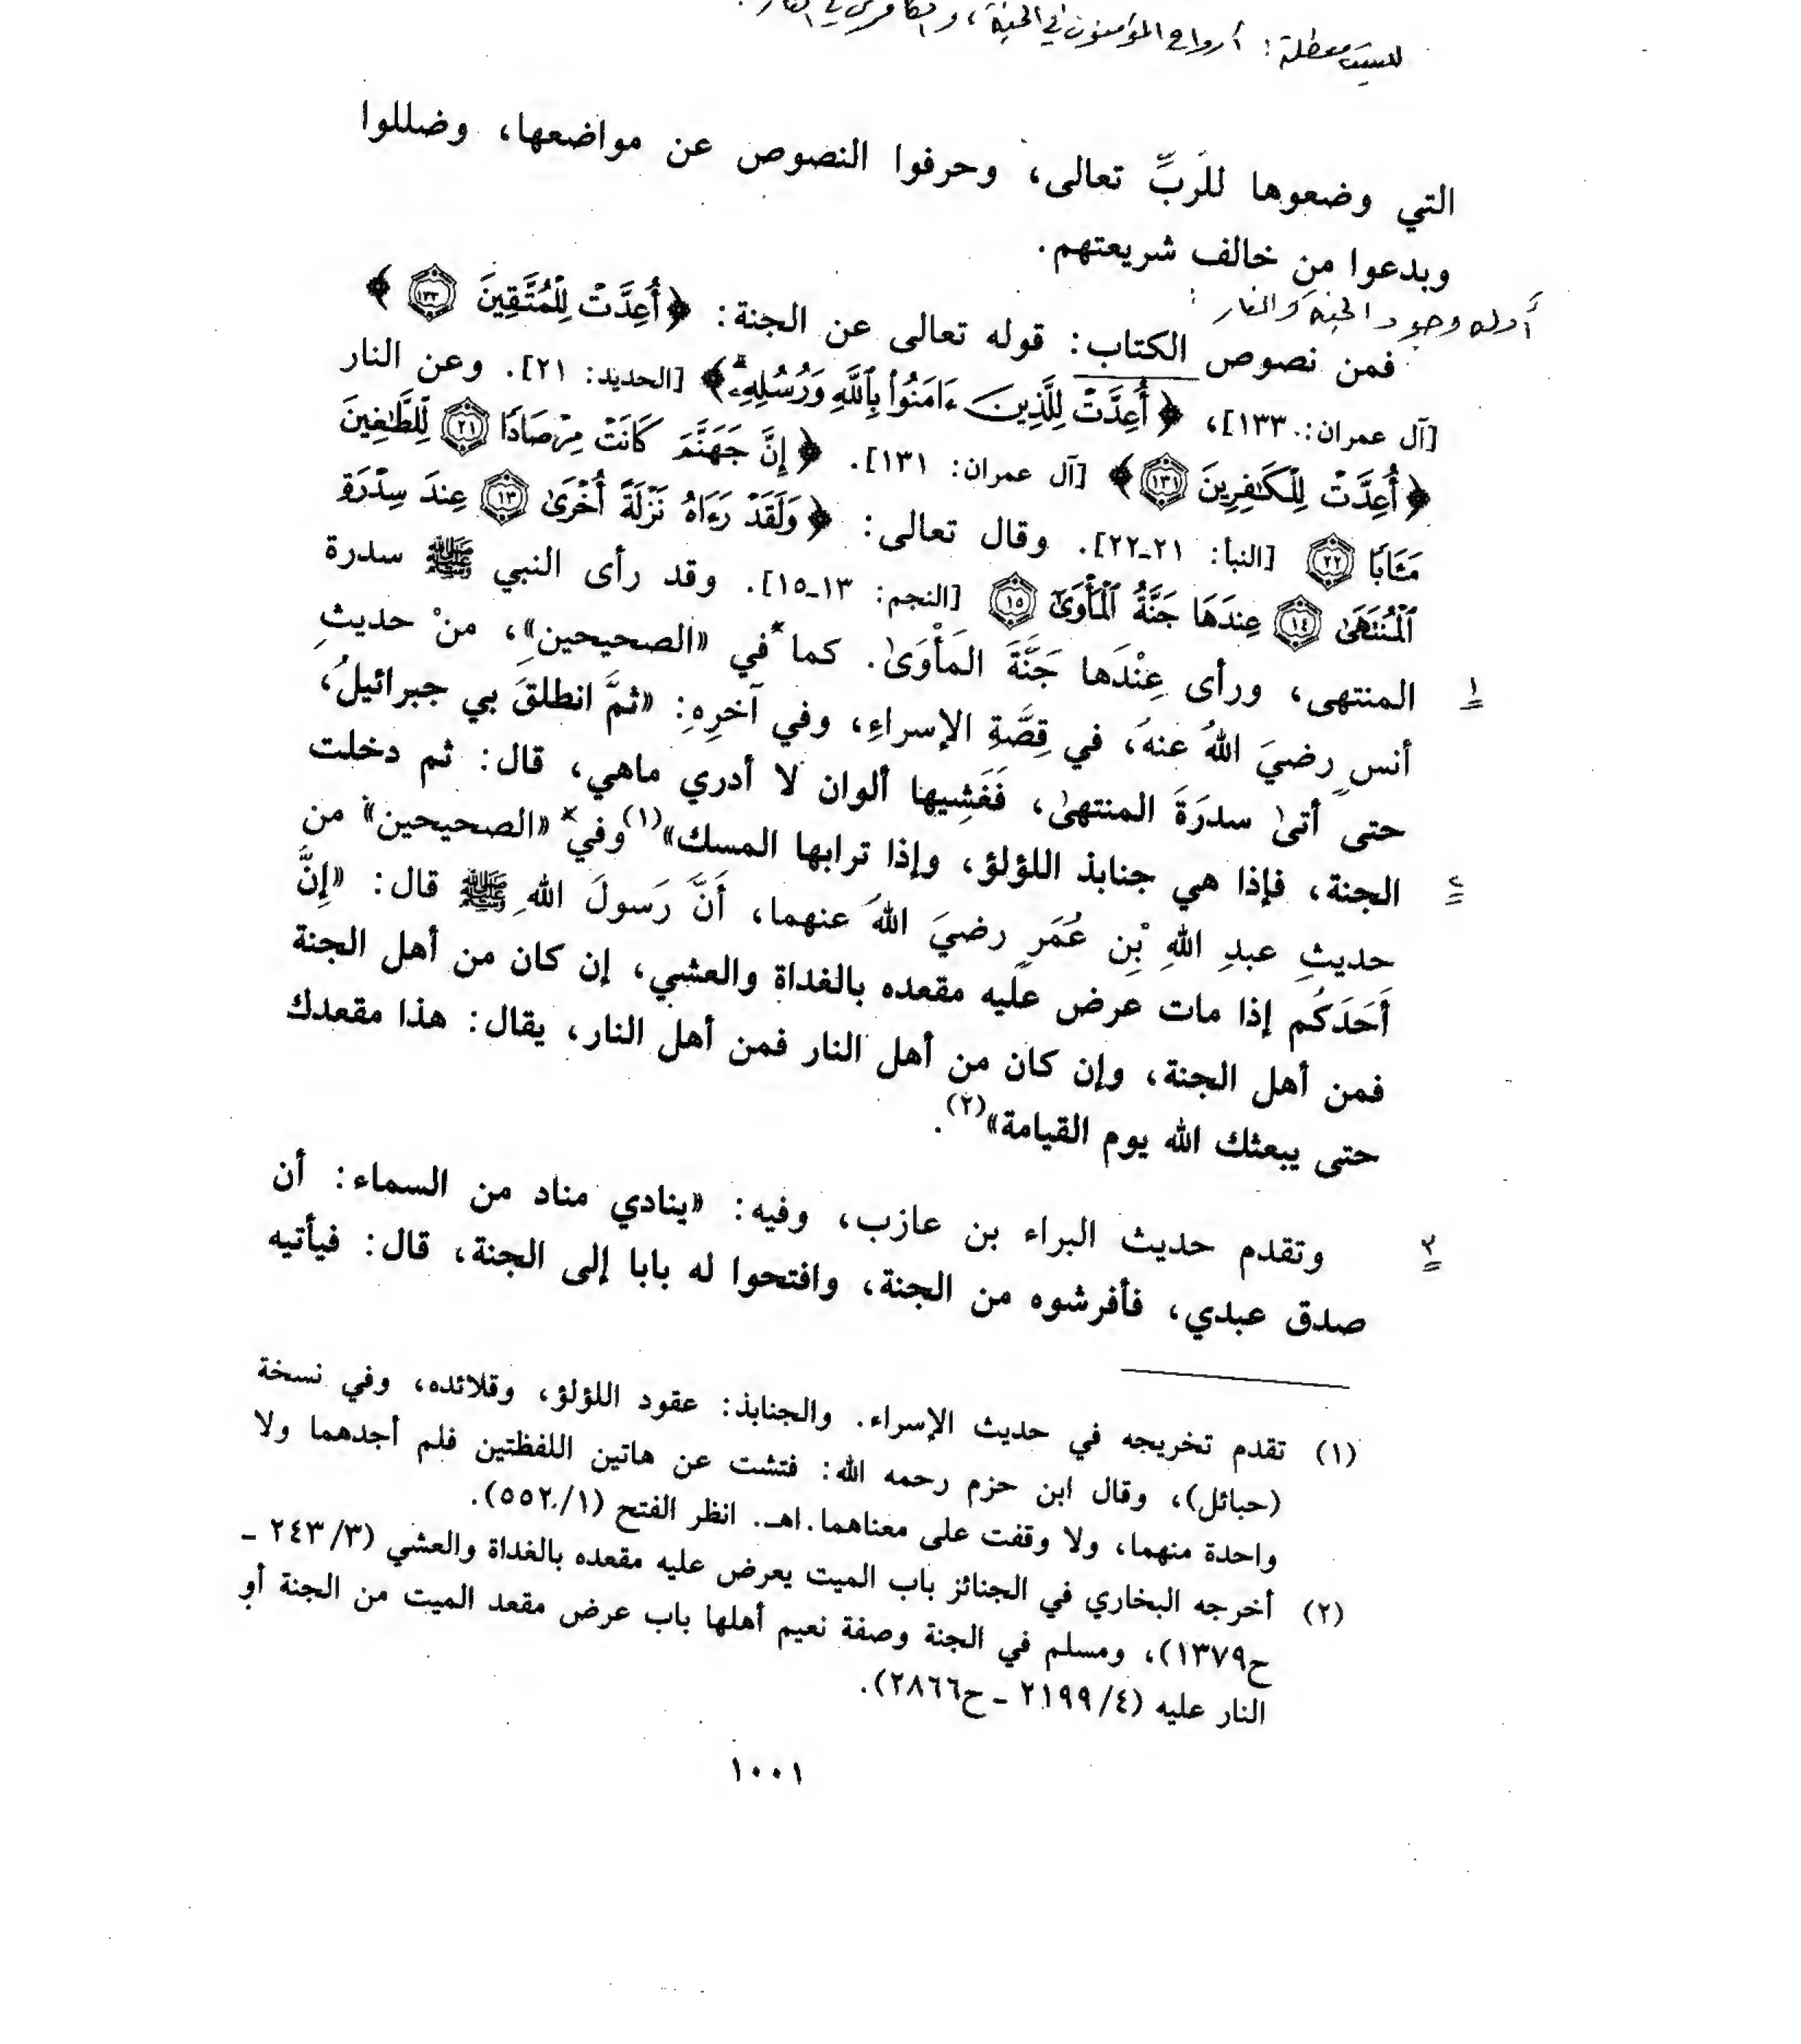 ليست معطلة: أرواح المؤمنون في الجنة، و
التي وضعوها للرَبِّ تعالى، وحرفوا النصوص عن مواضعها، وضللوا
وبدعوا من خالف شريعتهم.
أدلة وجود الجنة والنار:
فمن نصوص الكتاب: قوله تعالى عن الجنة: ﴿أُعِدَّتْ لِلْمُتَّقِينَ ١٣٣﴾
[آل عمران: ١٣٣]، ﴿أُعِدَّتْ لِلَّذِينَ ءَامَنُوا۟ بِٱللَّهِ وَرُسُلِهِۦ﴾ [الحديد: ٢١]. وعن النار
﴿أُعِدَّتْ لِلْكَٰفِرِينَ ١٣١﴾ [آل عمران: ١٣١]. ﴿إِنَّ جَهَنَّمَ كَانَتْ مِرْصَادًا ٢١ لِّلطَّٰغِينَ
مَـَٔابًا ٢٢ [النبأ: ٢١-٢٢]. وقال تعالى: ﴿وَلَقَدْ رَءَاهُ نَزْلَةً أُخْرَىٰ ١٣ عِندَ سِدْرَةِ
ٱلْمُنتَهَىٰ ١٤ عِندَهَا جَنَّةُ ٱلْمَأْوَىٰٓ ١٥ [النجم: ١٣-١٥]. وقد رأى النبي ﷺ سدرة
١ المنتهى، ورأى عِنْدَها جَنَّةَ المَأْوَىٰ. كما في «الصحيحينِ»، منْ حديثِ
أنسٍ رضيَ اللهُ عنهَ، في قِصَّةِ الإسراءِ، وفي آخرِهِ: «ثمَّ انطلقَ بي جبرائيلُ،
حتى أتىٰ سدرَةَ المنتهىٰ، فَغَشِيها ألوان لا أدري ماهي، قال: ثم دخلت
٢ الجنة، فإذا هي جنابذ اللؤلؤ، وإذا ترابها المسك»(١) وفي «الصحيحين» من
حديثِ عبدِ اللهِ بْنِ عُمَرٍ رضيَ اللهَ عنهما، أَنَّ رَسولَ اللهِ ﷺ قال: «إِنَّ
أَحَدَكُم إذا مات عرض عليه مقعده بالغداة والعشي، إن كان من أهل الجنة
فمن أهل الجنة، وإن كان من أهل النار فمن أهل النار، يقال: هذا مقعدك
حتى يبعثك الله يوم القيامة»(٢).
٣ وتقدم حديث البراء بن عازب، وفيه: «ينادي مناد من السماء: أن
صدق عبدي، فأفرشوه من الجنة، وافتحوا له بابا إلى الجنة، قال: فيأتيه
(١) تقدم تخريجه في حديث الإسراء. والجنابذ: عقود اللؤلؤ، وقلائده، وفي نسخة
(حبائل)، وقال ابن حزم رحمه الله: فتشت عن هاتين اللفظتين فلم أجدهما ولا
واحدة منهما، ولا وقفت على معناهما.اهـ. انظر الفتح (١/٥٥٢).
(٢) أخرجه البخاري في الجنائز باب الميت يعرض عليه مقعده بالغداة والعشي (٢٤٣/٣ ـ
ح١٣٧٩)، ومسلم في الجنة وصفة نعيم أهلها باب عرض مقعد الميت من الجنة أو
النار عليه (٢١٩٩/٤ ـ ح٢٨٦٦).
١٠٠١